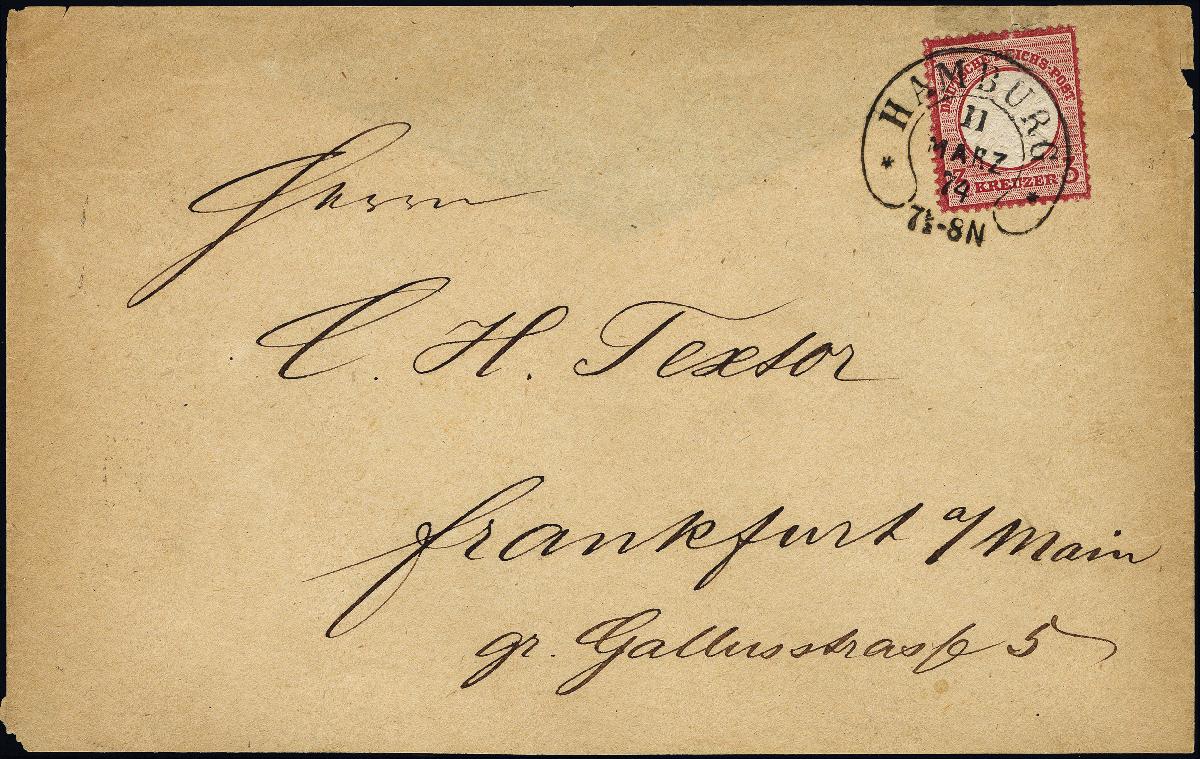 DEUTSCHE REICHS-POST
KREUZER
HAMBURG
11
MARZ
74
7½-8N
Herrn
C. H. Textor
Frankfurt a/Main
gr. Gallusstrasse 5